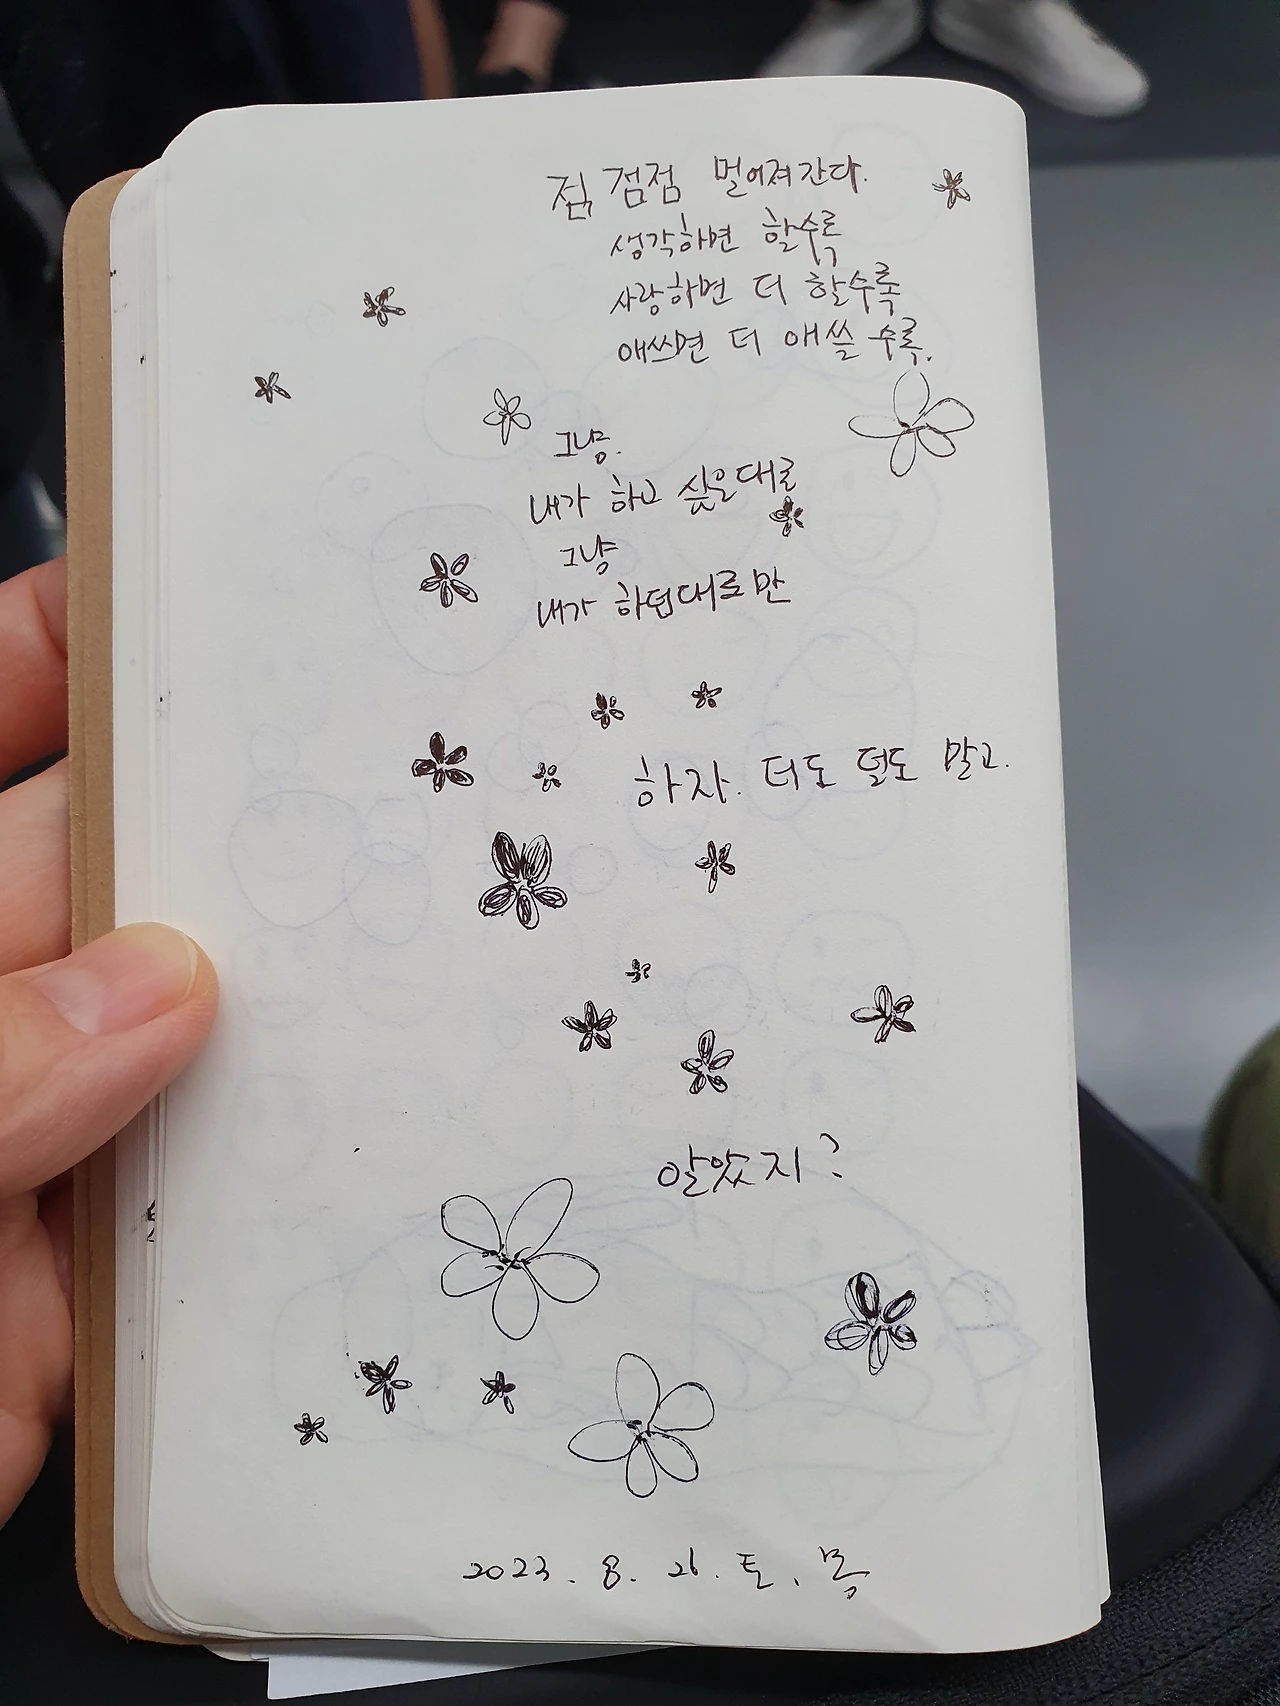 점, 점점 멀어져간다.
생각하면 할수록
사랑하면 더 할수록
애쓰면 더 애쓸 수록.
그냥.
내가 하고 싶은대로
그냥
내가 하던대로만
하자. 더도 덜도 말고.
알았지?
2023. 8. 26. 토.